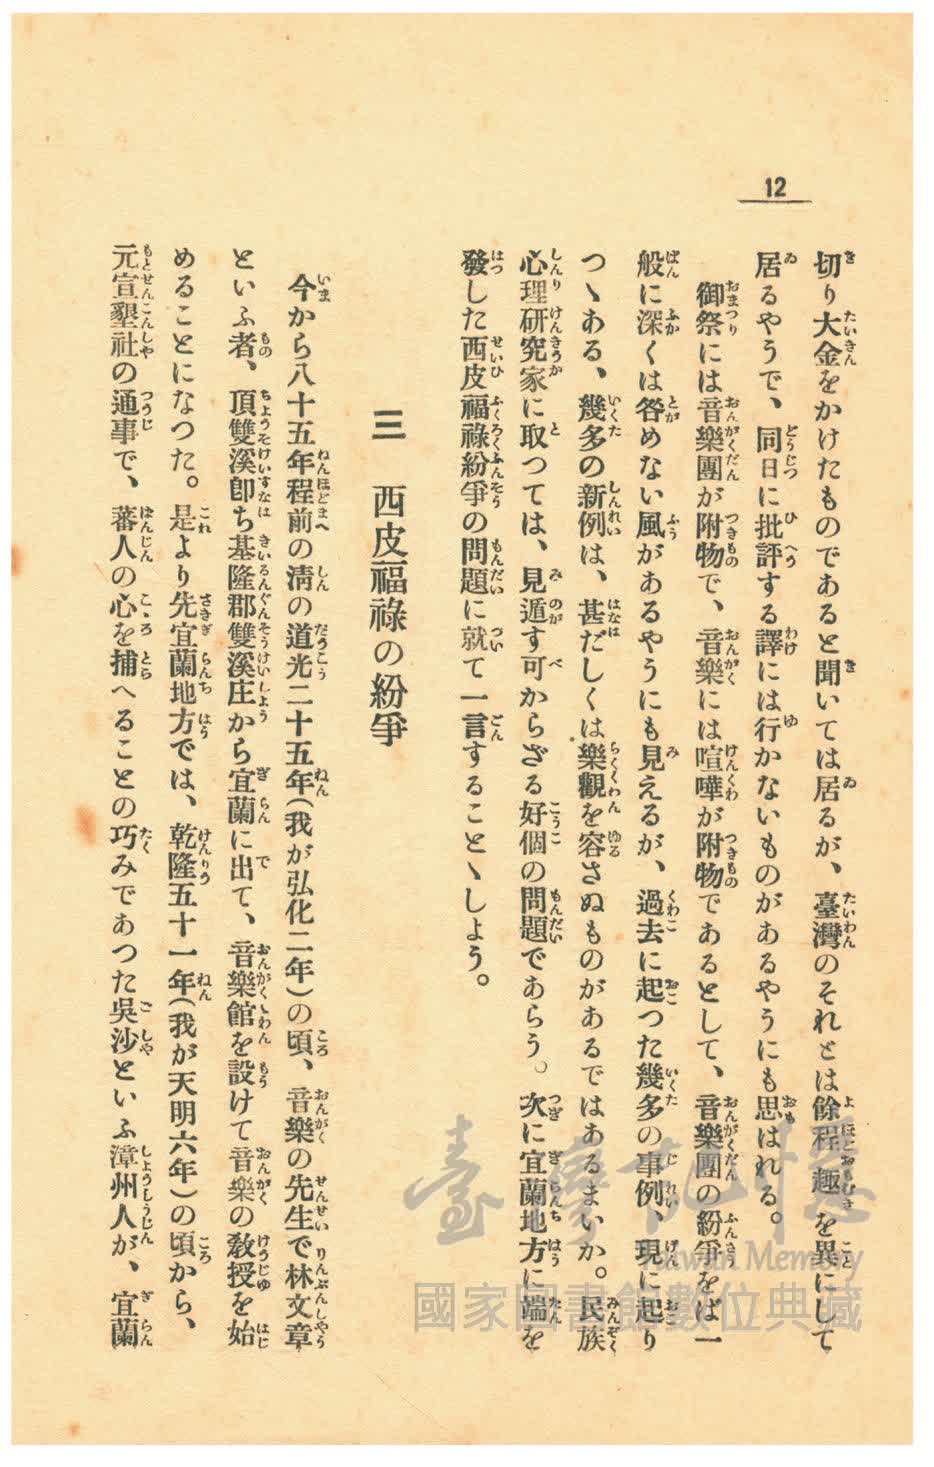 12
切り大金をかけたものであると聞いては居るが、臺灣のそれとは餘程趣を異にして
居るやうで、同日に批評する譯には行かないものがあるやうにも思はれる。
御祭には音樂團が附物で、音樂には喧嘩が附物であるとして、音樂團の紛爭をば一
般に深くは咎めない風があるやうにも見えるが、過去に起つた幾多の事例、現に起り
つゝある、幾多の新例は、甚だしくは樂觀を容さぬものがあるではあるまいか。民族
心理研究家に取つては、見遁す可からざる好個の問題であらう。次に宜蘭地方に端を
發した西皮福祿紛爭の問題に就て一言することゝしよう。
三 西皮福祿の紛爭
今から八十五年程前の淸の道光二十五年(我が弘化二年)の頃、音樂の先生で林文章
といふ者、頂雙溪卽ち基隆郡雙溪庄から宜蘭に出て、音樂館を設けて音樂の敎授を始
めることになつた。是より先宜蘭地方では、乾隆五十一年(我が天明六年)の頃から、
元宣墾社の通事で、蕃人の心を捕へることの巧みであつた吳沙といふ漳州人が、宜蘭
臺灣記憶
Taiwan Memory
國家圖書館數位典藏